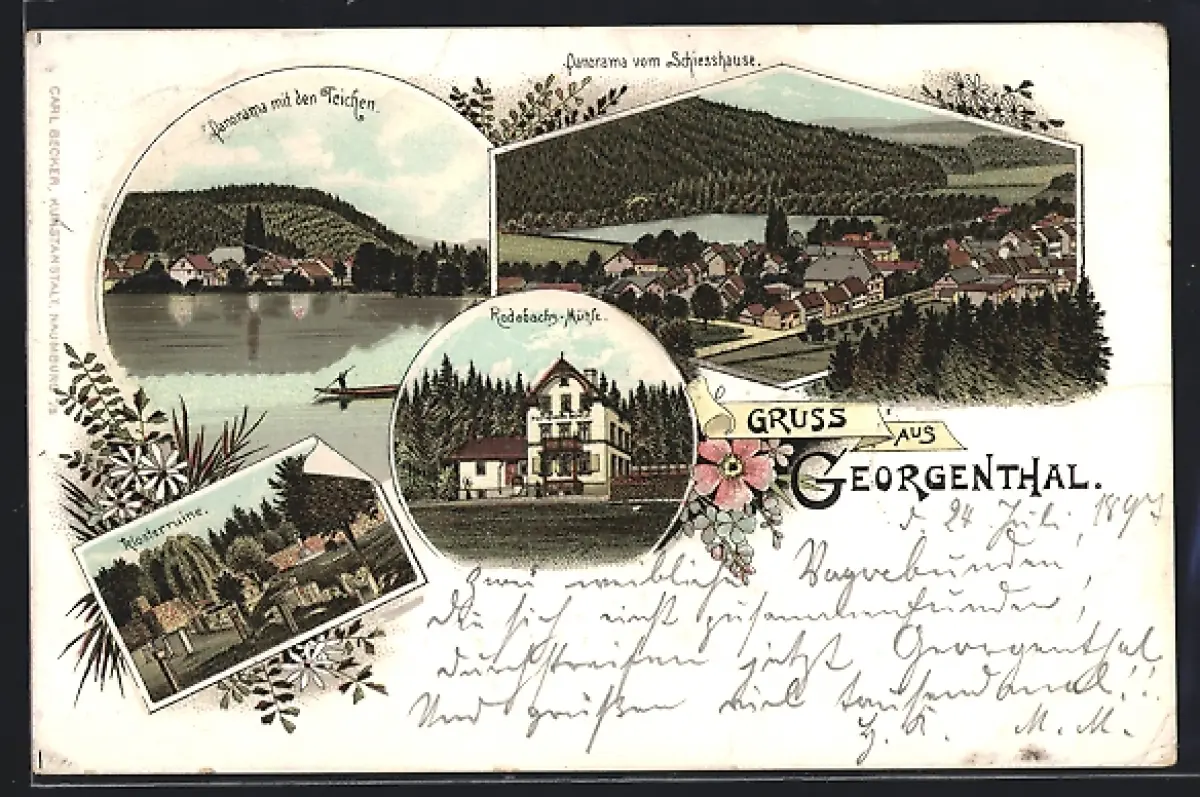 Panorama mit den Teichen.
Panorama vom Schiesshause.
Rodebachs-Mühle.
Klosterruine.
GRUSS AUS
GEORGENTHAL.
CARL BECKER, KUNSTANSTALT, NAUMBURG
d. 24 Juli, 1897
Zwei weibliche Vagabunden,
die sich zusammenfunden,
durchstreifen jetzt Georgenthal
Und grüßen viel tausendmal!!
H. K. M. M.